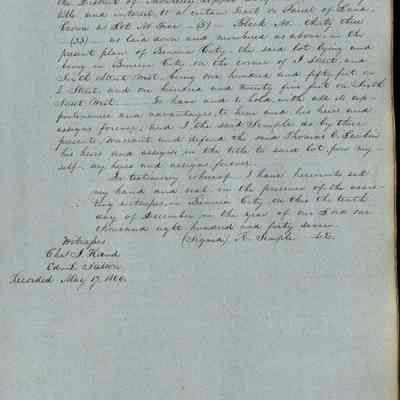 the District of
title and interest to a certain Tract or Parcel of Land,
known as Lot No four (5) Block No. thirty three
(33) as laid down and numbered as above in the
present plan of Benicia City, the said lot lying and
being in Benicia City, on the corner of I Street and
Sixth Street West, being one hundred and fifty feet on
I Street, and one hundred and twenty five feet on Sixth
Street West. To have and to hold, with all its app-
urtenances and advantages, to him and his heirs and
assigns forever; and I the said Semple do by these
presents, warrant and defend the said Thomas O. Larkin
his heirs and assigns in the title to said lot, from my-
self my heirs and assigns forever.
In testimony whereof I have hereunto set
my hand and seal in the presence of the
witnesses, in Benicia City, on this the tenth
day of December in the year of our Lord one
thousand eight hundred and forty seven.
Witnesses (Signed) R. Semple
Chas S. Hand
Edm.
Recorded May 17,